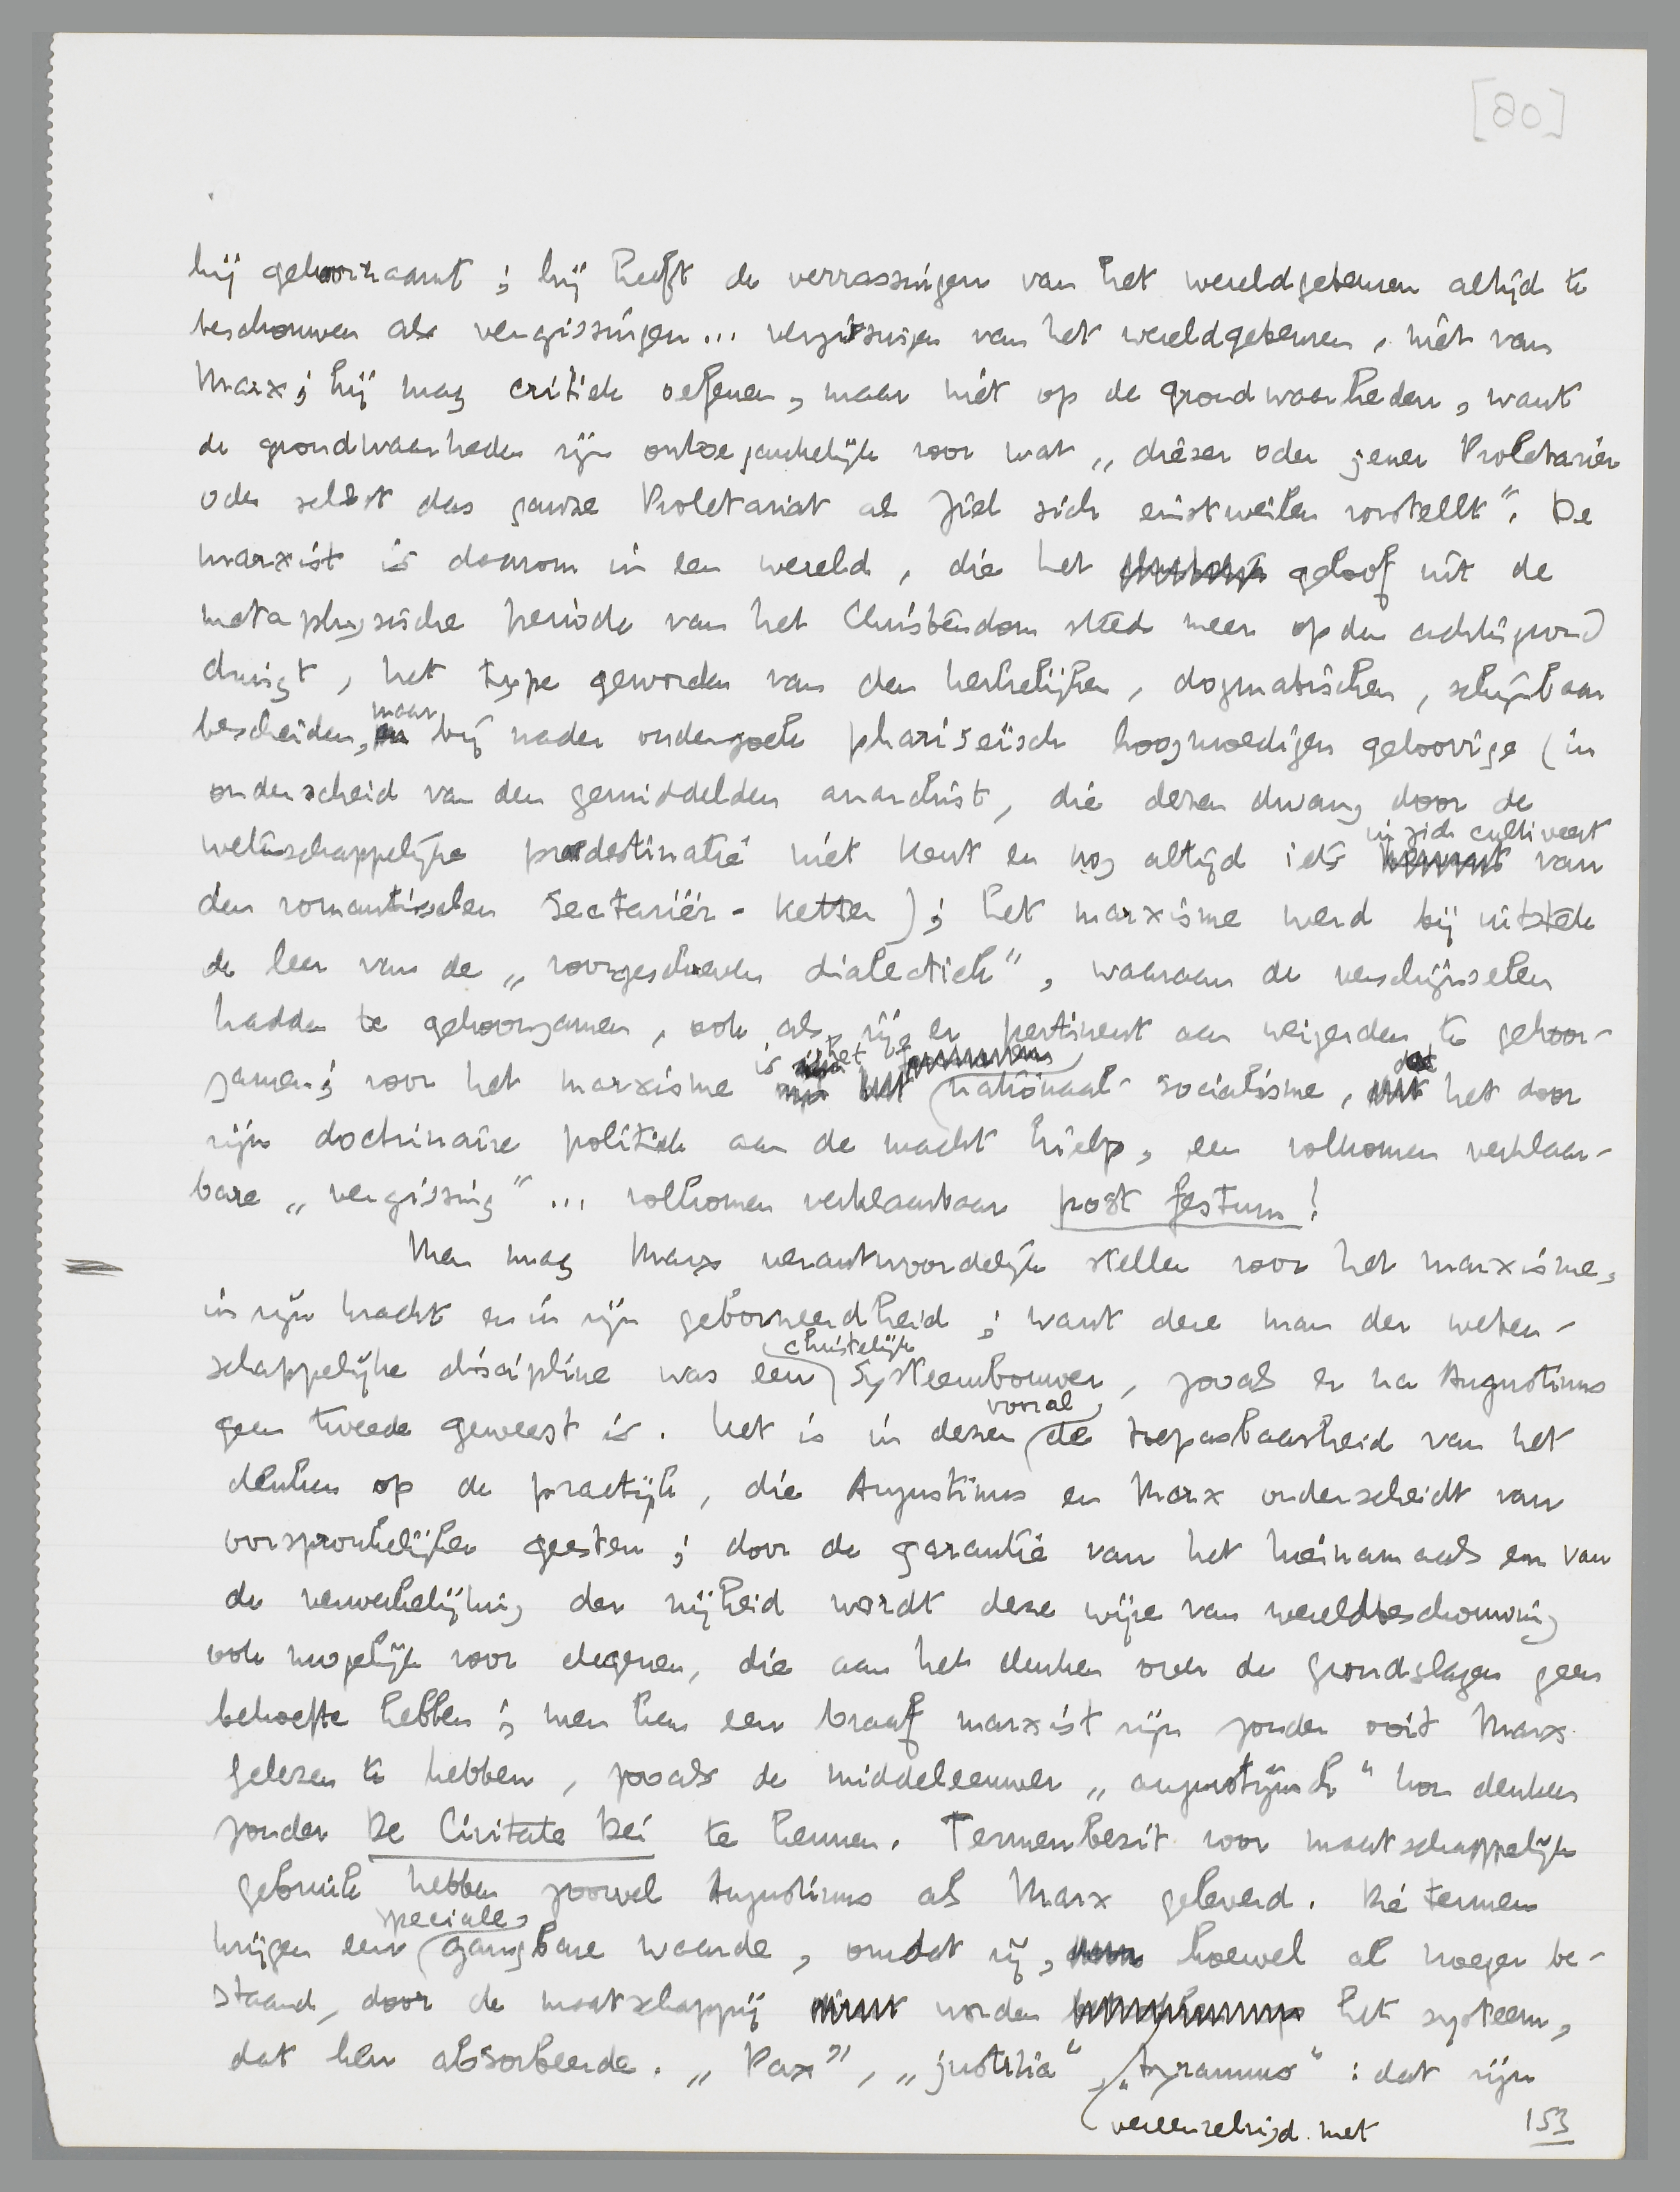 [80]
hij gehoorzaamt; hij heeft de verrassingen van het wereldgebeuren altijd te
beschouwen als vergissingen... vergissingen van het wereldgebeuren, niet van
Marx; hij mag critiek oefenen, maar niet op de grondwaarheden, want
de grondwaarheden zijn ontoegankelijk voor wat „dieser oder jener Proletarier
oder selbst das ganze Proletariat als Ziel sich einstweilen vorstellt”. De
marxist is daarom in een wereld, die het geloof uit de
metaphysische periode van het Christendom steeds meer op den achtergrond
dringt, het type geworden van den kerkelijken, dogmatischen, schijnbaar
bescheiden, maar bij nader onderzoek phariseïsch hoogmoedigen geloovige (in
onderscheid van den gemiddelden anarchist, die dezen dwang door de
wetenschappelijke praedestinatie niet kent en nog altijd iets in zich cultiveert van
den romantischen Sectariër-ketter); het marxisme werd bij uitstek
de leer van de „voorgeschreven dialectiek”, waaraan de verschijnselen
hadden te gehoorzamen, ook als zij er pertinent aan weigerden te gehoor-
zamen; voor het marxisme is het nationaal-socialisme, dat het door
zijn doctrinaire politiek aan de macht hielp, een volkomen verklaar-
bare „vergissing”... volkomen verklaarbaar post festum!
Men mag Marx verantwoordelijk stellen voor het marxisme,
in zijn kracht en in zijn geborneerdheid; want deze man der weten-
schappelijke discipline was een christelijk systeembouwer, zooals er na Augustinus
geen tweede geweest is. Het is in dezen vooral de toepasbaarheid van het
denken op de practijk, die Augustinus en Marx onderscheidt van
oorspronkelijker geesten; door de garantie van het hiernamaals en van
de verwerkelijking der vrijheid wordt deze wijze van wereldbeschouwing
ook mogelijk voor degenen, die aan het denken over de grondslagen geen
behoefte hebben; men kan een braaf marxist zijn zonder ooit Marx
gelezen te hebben, zooals de middeleeuwer „augustijnsch” kon denken
zonder De Civitate Dei te kennen. Termenbezit voor maatschappelijk
gebruik hebben zoowel Augustinus als Marx geleverd. Die termen
krijgen een speciale, gangbare waarde, omdat zij, hoewel al vroeger be-
staand, door de maatschappij worden vereenzelvigd met het systeem,
dat hen absorbeerde. „Pax”, „justitia”, „tyrannus”: dat zijn
153